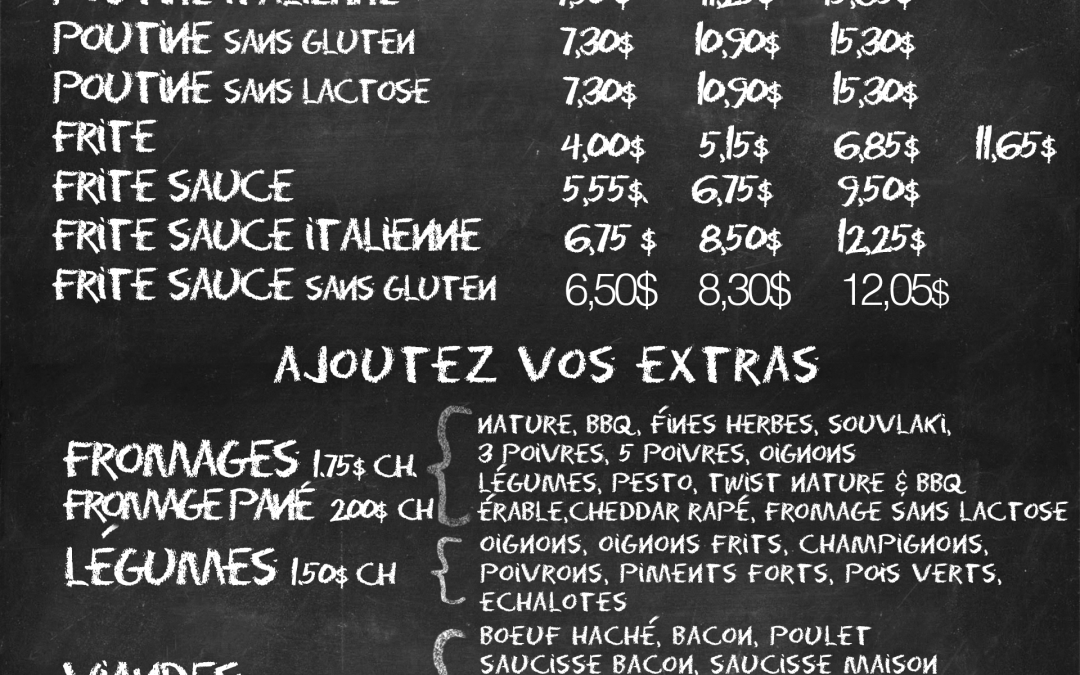 POUTINE ITALIENNE
POUTINE SANS GLUTEN 7,30$ 10,90$ 15,30$
POUTINE SANS LACTOSE 7,30$ 10,90$ 15,30$
FRITE 4,00$ 5,15$ 6,85$ 11,65$
FRITE SAUCE 5,55$ 6,75$ 9,50$
FRITE SAUCE ITALIENNE 6,75 $ 8,50$ 12,25$
FRITE SAUCE SANS GLUTEN 6,50$ 8,30$ 12,05$
AJOUTEZ VOS EXTRAS
FROMAGES 1.75$ CH.
FROMAGE PANÉ 2.00$ CH
NATURE, BBQ, FINES HERBES, SOUVLAKI,
3 POIVRES, 5 POIVRES, OIGNONS
LÉGUMES, PESTO, TWIST NATURE & BBQ
ÉRABLE,CHEDDAR RAPÉ, FROMAGE SANS LACTOSE
LÉGUMES 1.50$ CH
OIGNONS, OIGNONS FRITS, CHAMPIGNONS,
POIVRONS, PIMENTS FORTS, POIS VERTS,
ECHALOTES
VIANDES
BOEUF HACHÉ, BACON, POULET
SAUCISSE BACON, SAUCISSE MAISON